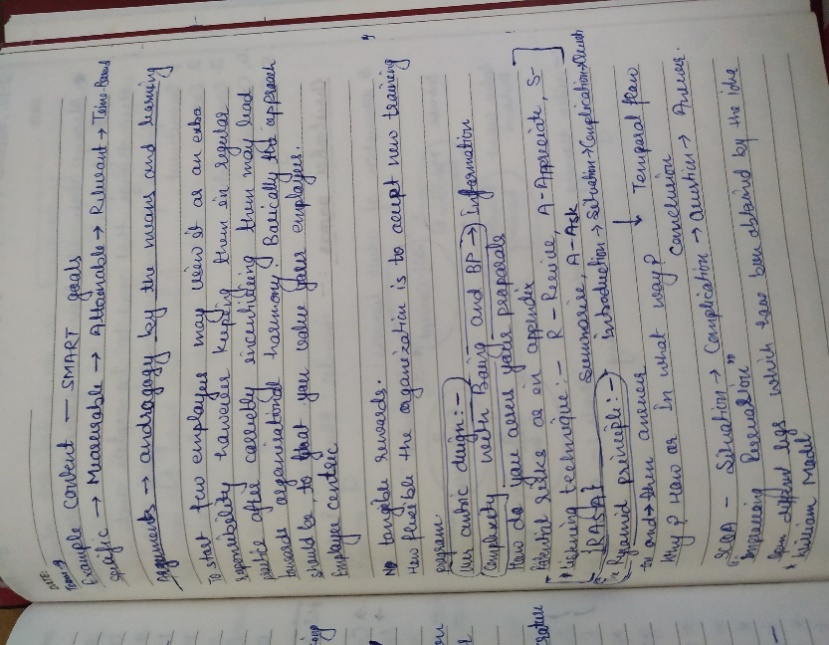 DATE:
Example Content — SMART goals
Specific → Measurable → Attainable → Relevant → Time-Bound
Arguments → andragogy by the means and learning
To start few employees may view it as an extra
responsibility however keeping them in regular
practice after correctly incentivising them may lead
towards organisational harmony. Basically the approach
should be, to that you value your employees.
Employee centric
No tangible rewards.
How flexible the organization is to accept new training
program.
User centric design:-
Complexity with Being and BP → Information
How do you assess your proposals
Potential risks as an appendix
* Listening technique:- R - Receive, A - Appreciate, S-
[RASA] Summarise, A - Ask
Pyramid principle:- Introduction → Situation → Complication →
to and → then answer ↓ Temporal flow
Why? How or In what way? Conclusion
SCQA - Situation → Complication → Question → Answer.
which have been obtained by the
* William Model